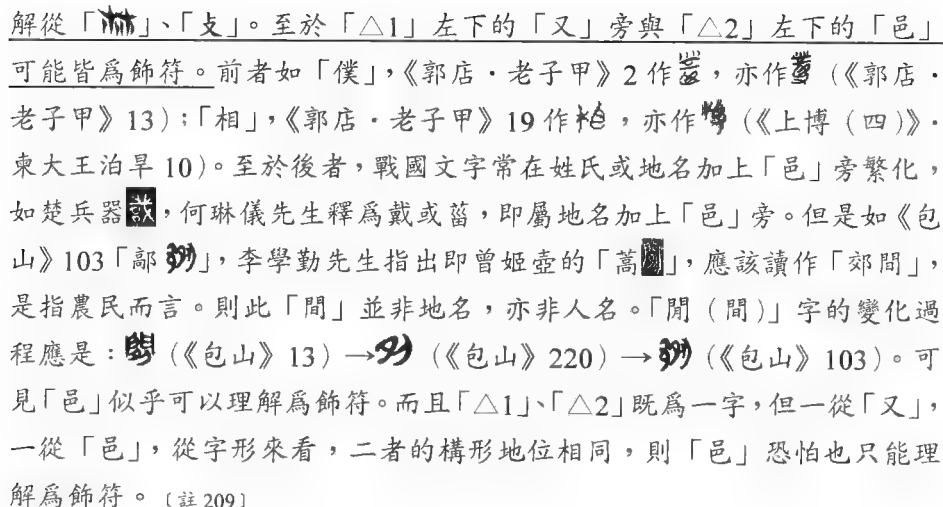 解從「」、「攴」。至於「△1」左下的「又」旁與「△2」左下的「邑」
可能皆為飾符。前者如「僕」,《郭店.老子甲》2 作,亦作(《郭店.
老子甲》13);「相」,《郭店.老子甲》19 作,亦作(《上博(四)》.
柬大王泊旱 10)。至於後者,戰國文字常在姓氏或地名加上「邑」旁繁化,
如楚兵器,何琳儀先生釋為戴或菑,即屬地名加上「邑」旁。但是如《包
山》103「鄗」,李學勤先生指出即曾姬壺的「蒿」,應該讀作「郊間」,
是指農民而言。則此「間」並非地名,亦非人名。「閒(間)」字的變化過
程應是:(《包山》13)→(《包山》220)→(《包山》103)。可
見「邑」似乎可以理解為飾符。而且「△1」、「△2」既為一字,但一從「又」,
一從「邑」,從字形來看,二者的構形地位相同,則「邑」恐怕也只能理
解為飾符。〔註 209〕